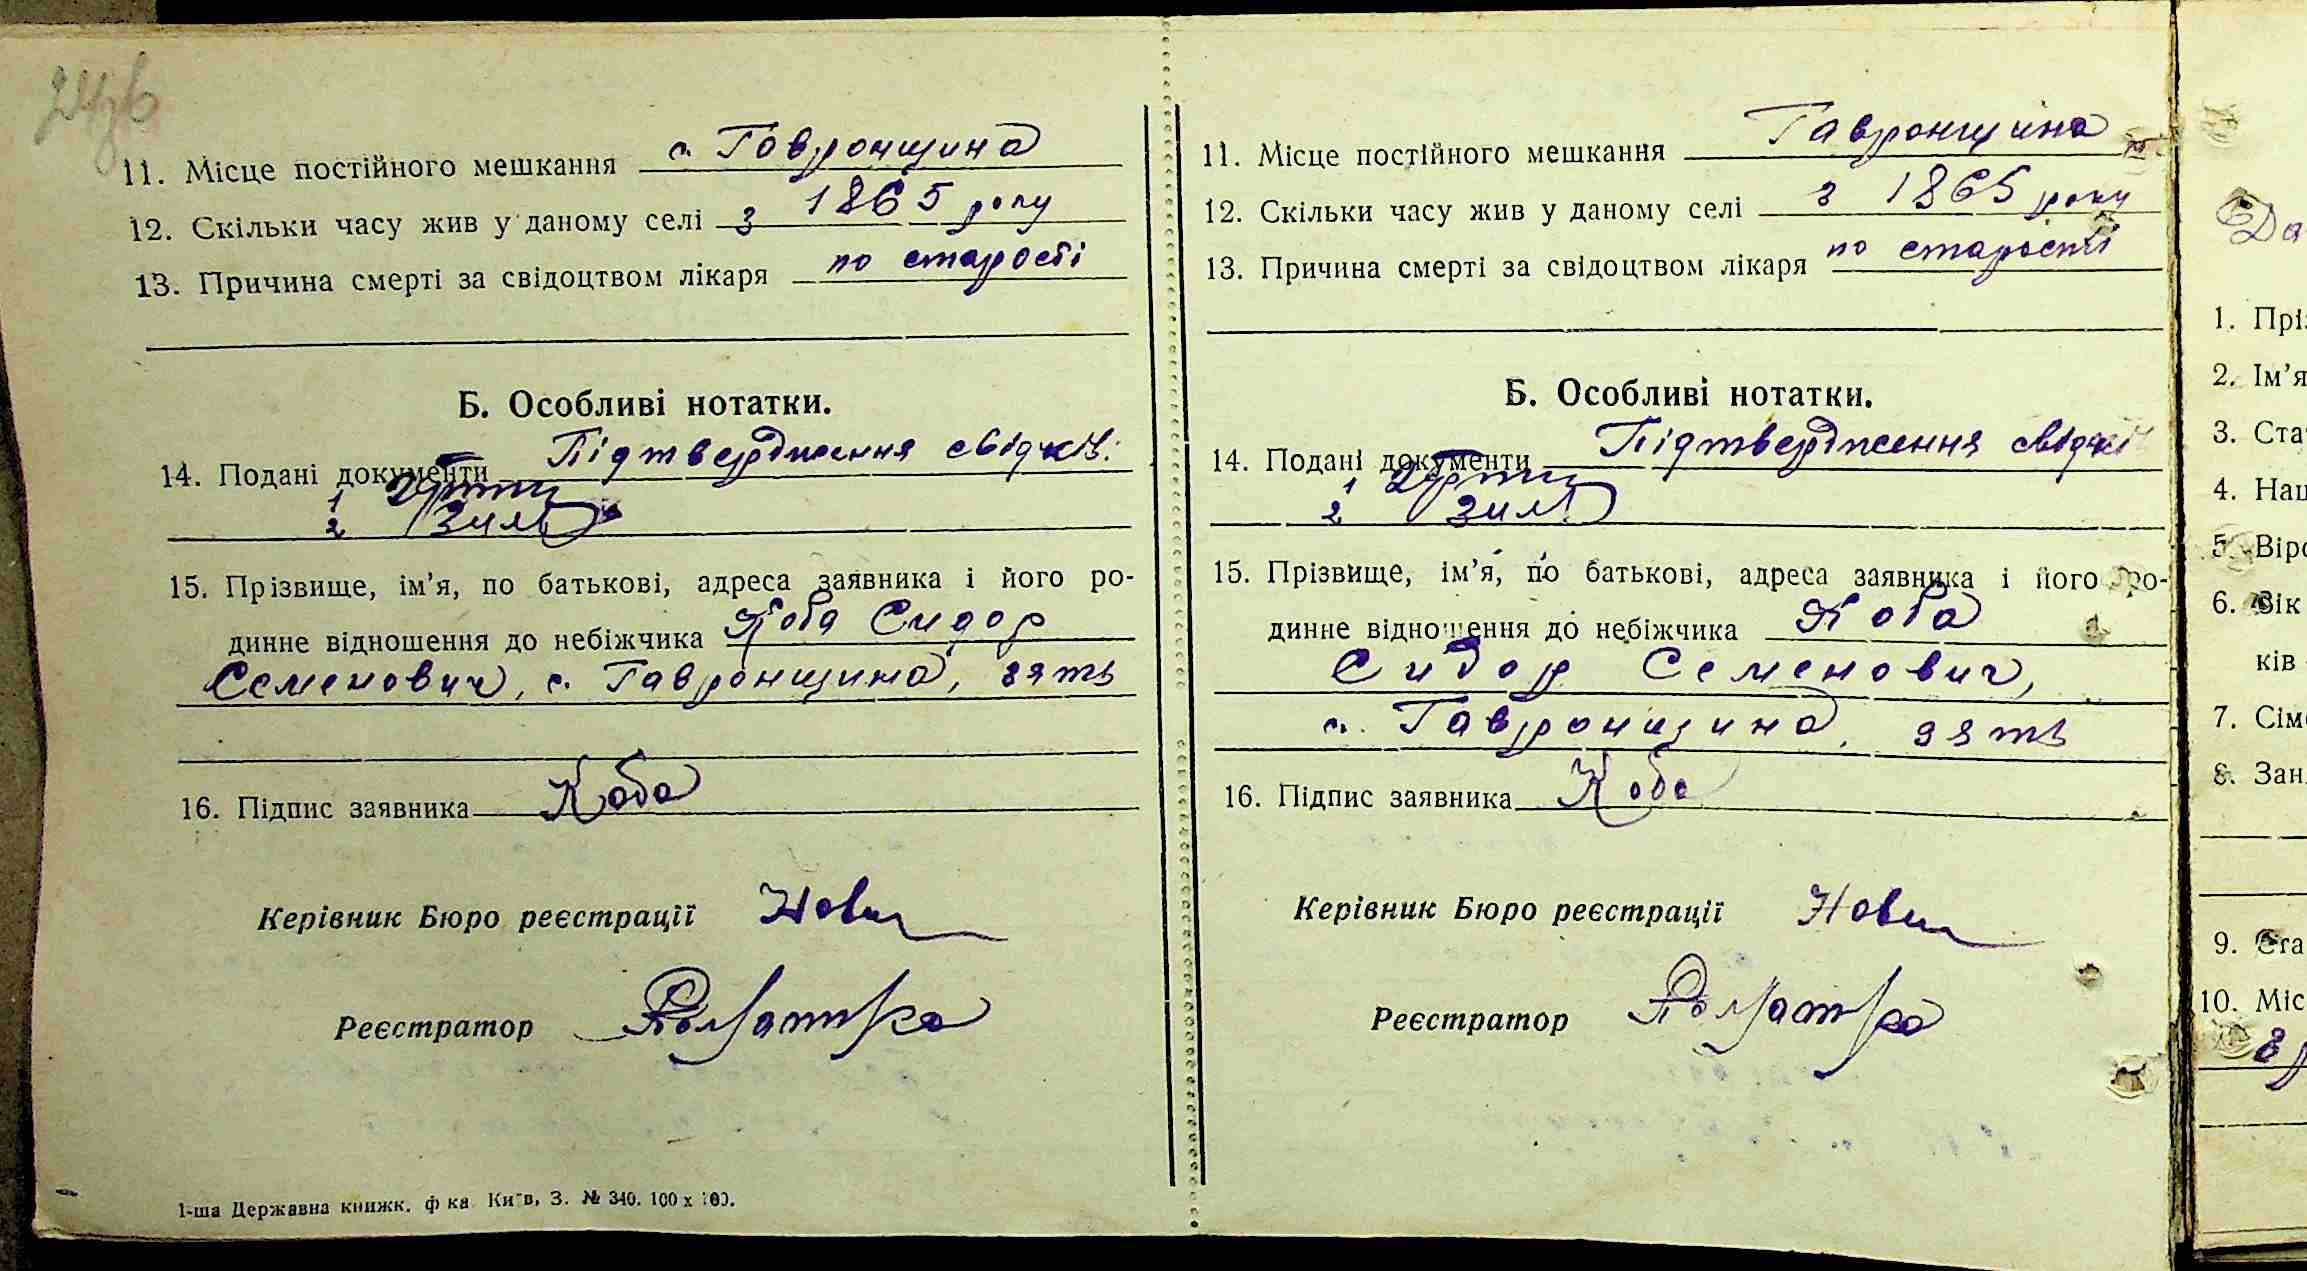 24зв
11. Місце постійного мешкання с. Гавронщина
12. Скільки часу жив у даному селі з 1865 року
13. Причина смерті за свідоцтвом лікаря по старості
Б. Особливі нотатки.
14. Подані документи Підтвердження свідків:
1
2
15. Прізвище, ім'я, по батькові, адреса заявника і його ро-
динне відношення до небіжчика Коба Сидор
Семенович, с. Гавронщина, зять
16. Підпис заявника Коба
Керівник Бюро реєстрації
Реєстратор
1-ша Державна книжк. ф ка Київ, З. № 340. 100 х 100.
11. Місце постійного мешкання Гавронщина
12. Скільки часу жив у даному селі з 1865 року
13. Причина смерті за свідоцтвом лікаря по старости
Б. Особливі нотатки.
14. Подані документи Підтвердження свідків
1
2
15. Прізвище, ім'я, по батькові, адреса заявника і його ро-
динне відношення до небіжчика Коба
Сидор Семенович,
с. Гавронщина, зять
16. Підпис заявника Коба
Керівник Бюро реєстрації
Реєстратор
Да
1. Прі
2. Ім'я
3. Ста
4. Нац
5. Віро
6. Вік
ків
7. Сім
8. Зан
9. Ста
10. Міс